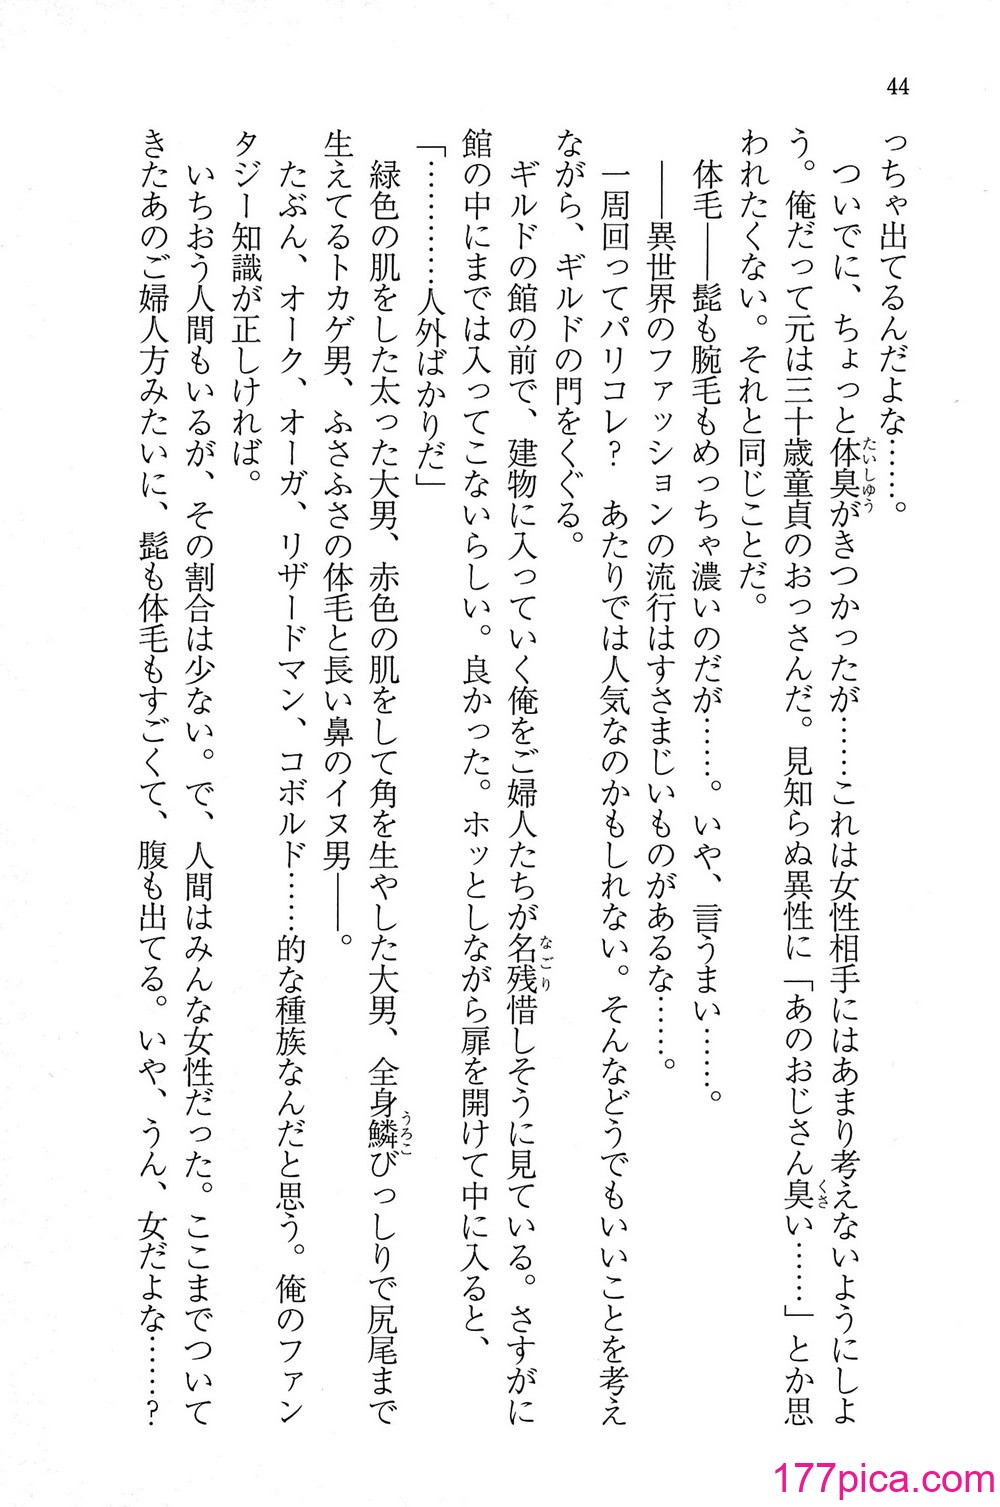 44
っちゃ出てるんだよな……。
ついでに、ちょっと体臭がきつかったが……これは女性相手にはあまり考えないようにしよ
う。俺だって元は三十歳童貞のおっさんだ。見知らぬ異性に「あのおじさん臭い……」とか思
われたくない。それと同じことだ。
体毛――髭も腕毛もめっちゃ濃いのだが……。いや、言うまい……。
――異世界のファッションの流行はすさまじいものがあるな……。
一周回ってパリコレ？　あたりでは人気なのかもしれない。そんなどうでもいいことを考え
ながら、ギルドの門をくぐる。
ギルドの館の前で、建物に入っていく俺をご婦人たちが名残惜しそうに見ている。さすがに
館の中にまでは入ってこないらしい。良かった。ホッとしながら扉を開けて中に入ると、
「…………人外ばかりだ」
緑色の肌をした太った大男、赤色の肌をして角を生やした大男、全身鱗びっしりで尻尾まで
生えてるトカゲ男、ふさふさの体毛と長い鼻のイヌ男――。
たぶん、オーク、オーガ、リザードマン、コボルド……的な種族なんだと思う。俺のファン
タジー知識が正しければ。
いちおう人間もいるが、その割合は少ない。で、人間はみんな女性だった。ここまでついて
きたあのご婦人方みたいに、髭も体毛もすごくて、腹も出てる。いや、うん、女だよな……？
177pica.com